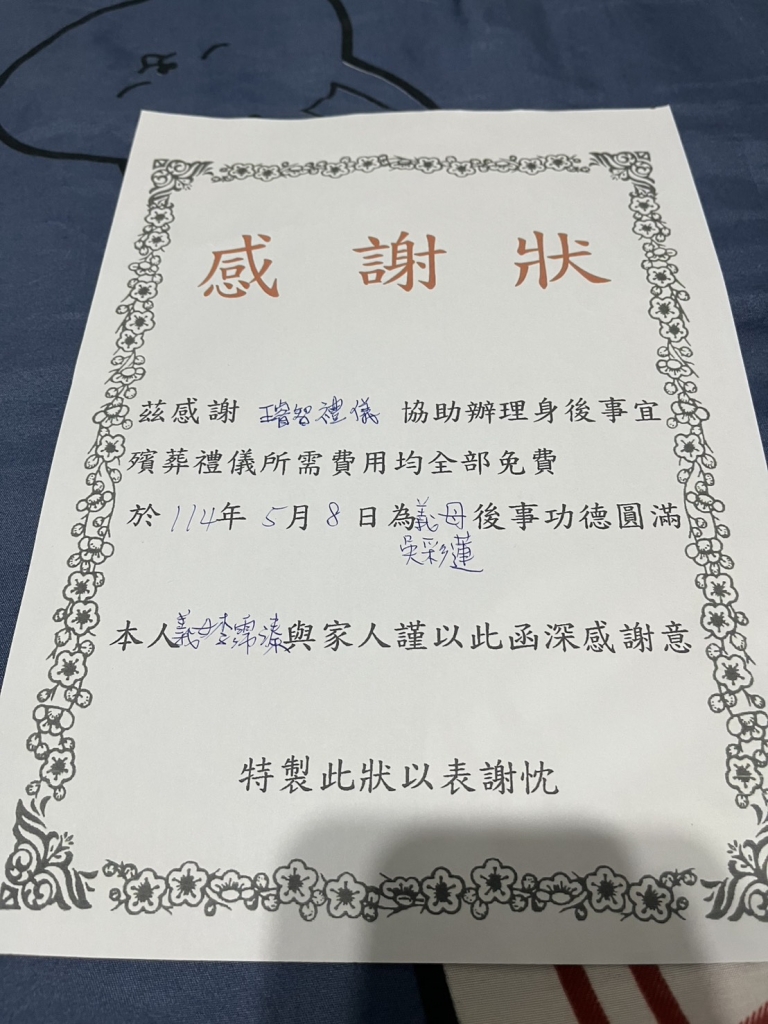 感謝狀
茲感謝 璿智禮儀 協助辦理身後事宜
殯葬禮儀所需費用均全部免費
於 114年 5月 8 日為義母後事功德圓滿
吳彩蓮
本人義女李霈溱與家人謹以此函深感謝意
特製此狀以表謝忱